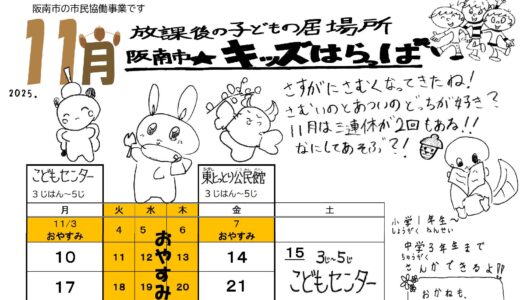 阪南市の市民協働事業です
11月
2025.
放課後の子どもの居場所
阪南市★キッズはらっぱ
さすがにさむくなってきたね!
さむいのとあついのどっちが好き?
11月は三連休が2回もある!!
なにしてあそぶ?!
こどもセンター
3じはん〜5じ
東とっとり公民館
3じはん〜5じ
月 火 水 木 金 土
11/3 おやすみ 4 5 6 7 おやすみ
10 11 12 13 14 15 3じ〜5じ こどもセンター
17 18 19 20 21
おやすみ
小学1年生〜
しょうがく ねんせい
中学3年生まで
ちゅうがく
さんかできるよ!!
おかねも、